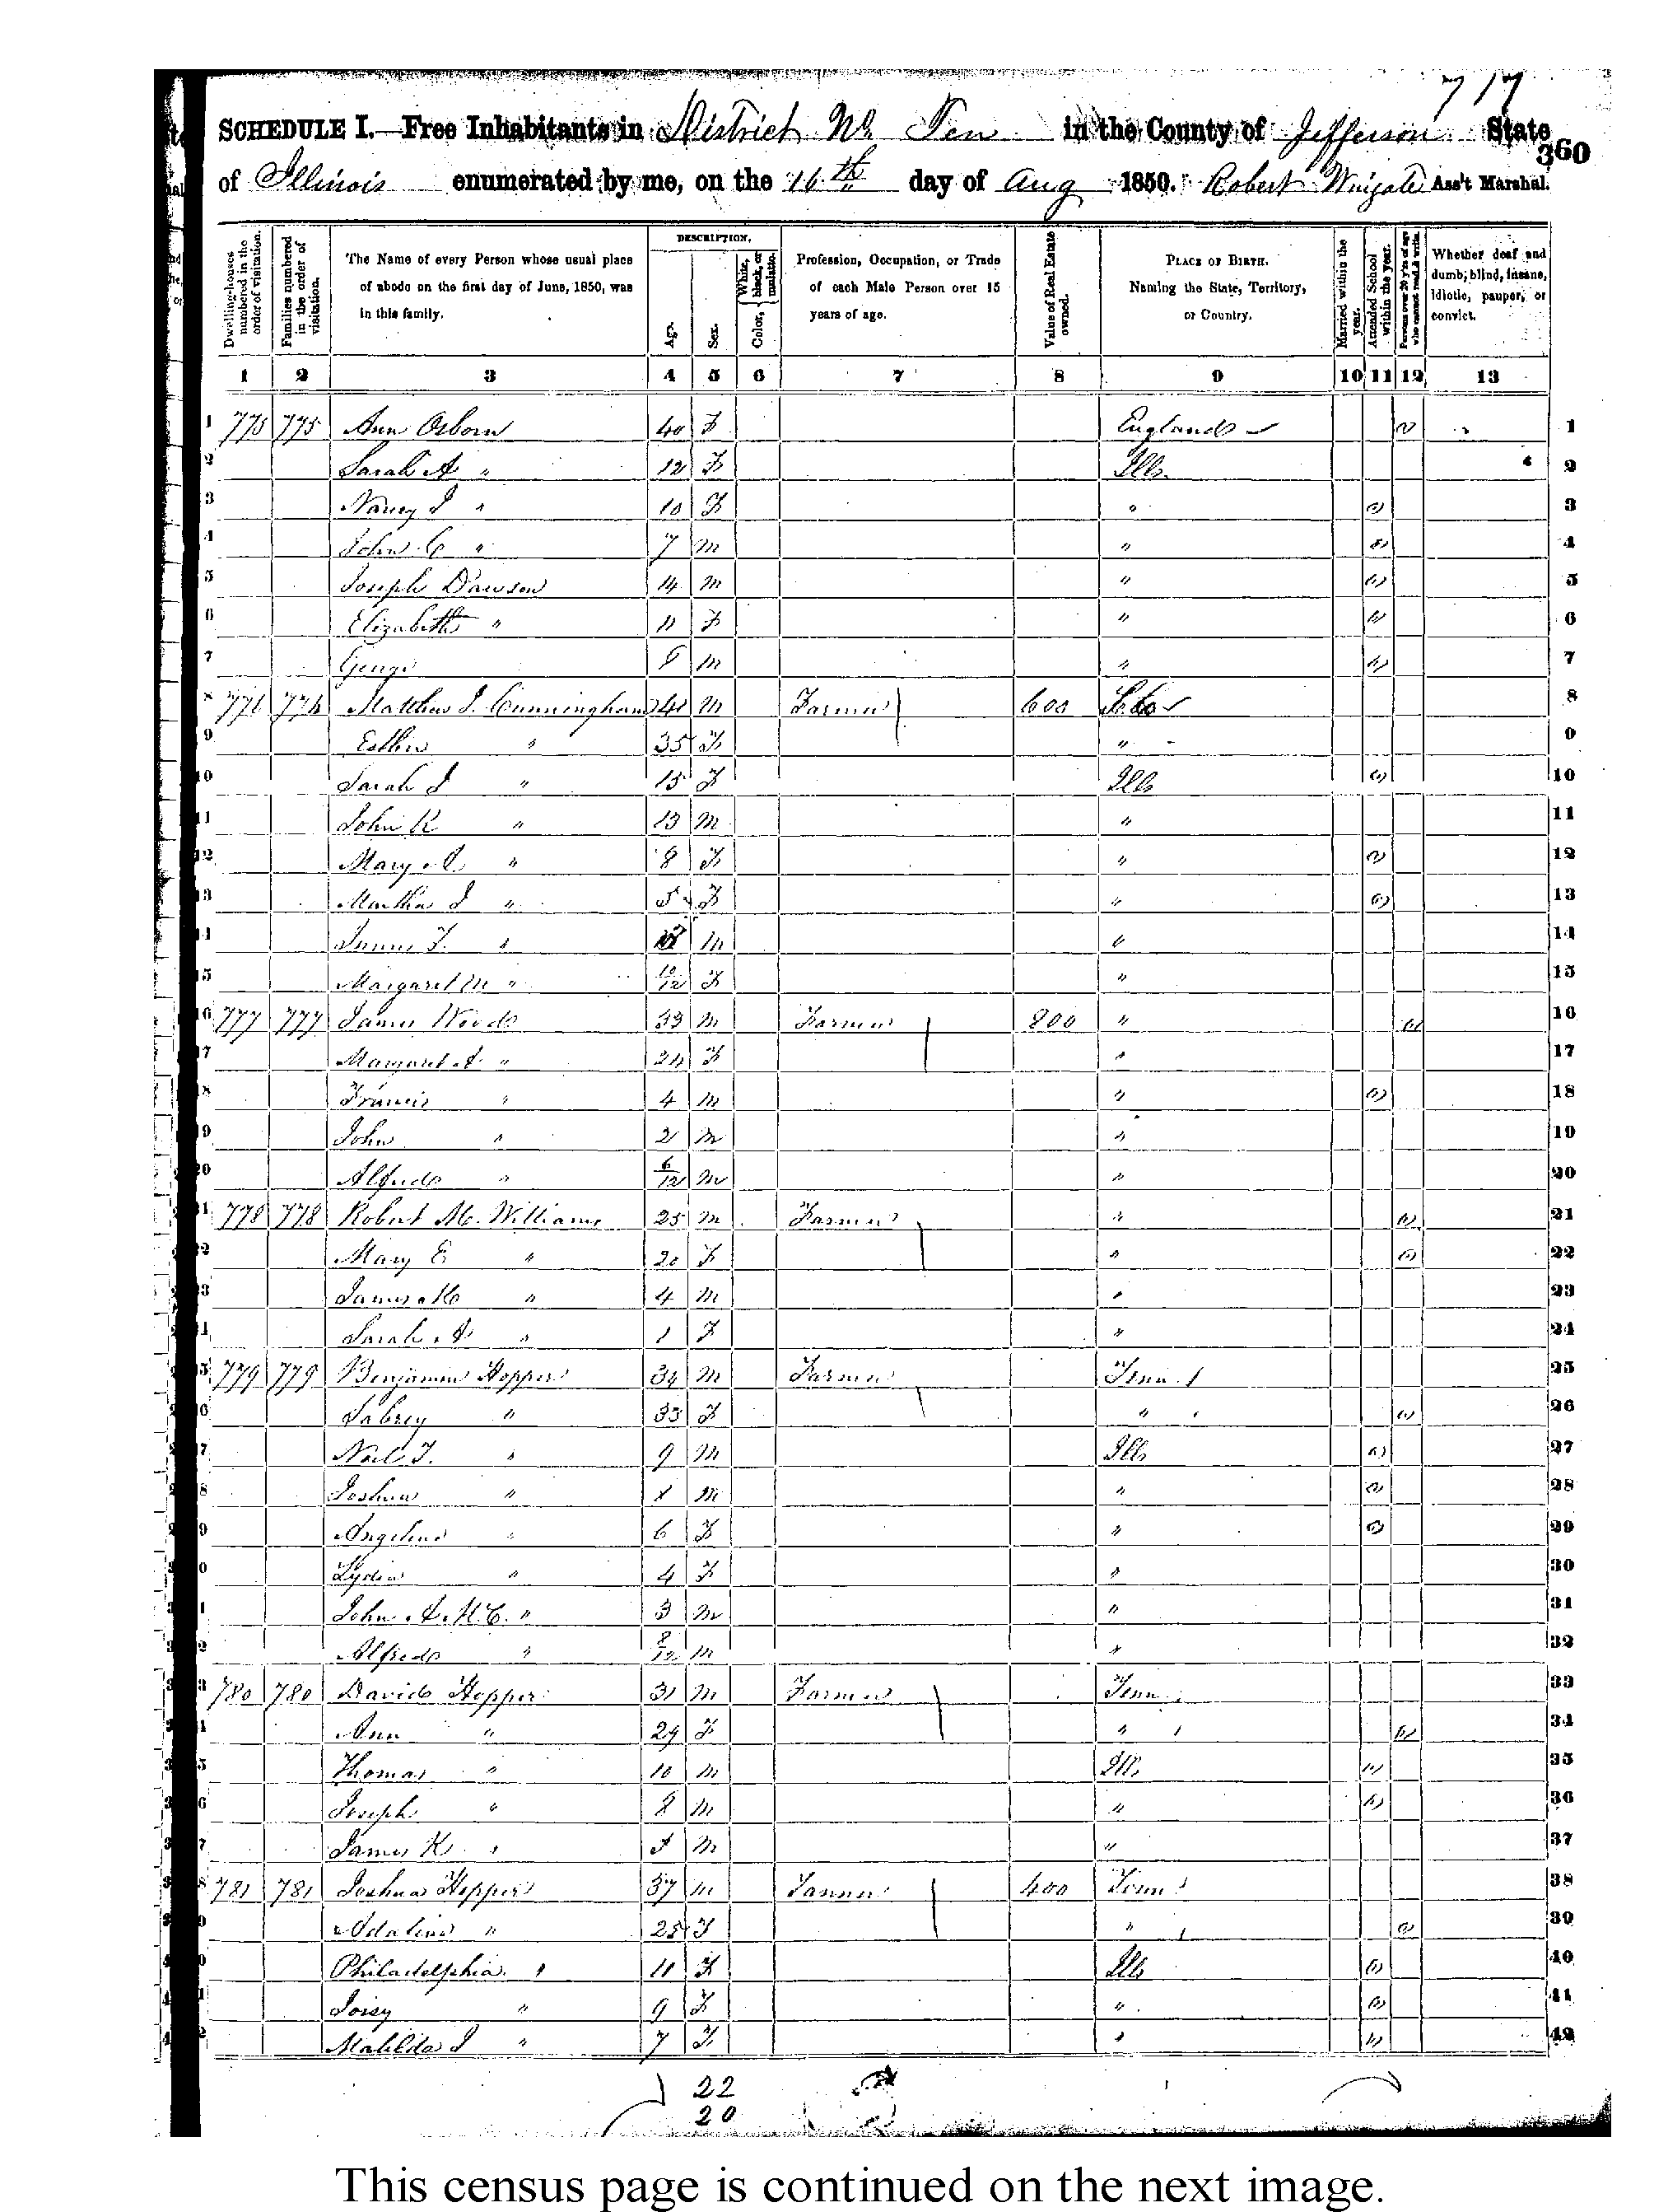 717
SCHEDULE I.—Free Inhabitants in District No Ten in the County of Jefferson State
360
of Illinois enumerated by me, on the 16th day of Aug 1850. Robert Wingate Ass't Marshal.
DESCRIPTION.
Dwelling-houses numbered in the order of visitation.
Families numbered in the order of visitation.
The Name of every Person whose usual place of abode on the first day of June, 1850, was in this family.
Age.
Sex.
Color, White, black, or mulatto.
Profession, Occupation, or Trade of each Male Person over 15 years of age.
Value of Real Estate owned.
PLACE OF BIRTH. Naming the State, Territory, or Country.
Married within the year.
Attended School within the year.
Persons over 20 y'rs of age who cannot read & write.
Whether deaf and dumb, blind, insane, idiotic, pauper, or convict.
1 2 3 4 5 6 7 8 9 10 11 12 13
1 775 775 Ann Osborn 40 F England 1
2 Sarah A " 12 F Ills. 2
3 Nancy J " 10 F " 3
4 John C " 7 M " 4
5 Joseph Dawson 14 M " 5
6 Elizabeth " 11 F " 6
7 George M " 7
8 776 776 Matthew J. Cunningham M Farmer 600 8
9 Esther " 35 F " 9
10 Sarah J " 15 F Ills 10
11 John R " 13 M " 11
12 Mary " 8 F " 12
13 Martha J " 5 F " 13
14 James F. " M " 14
15 Margaret M " 10/12 F " 15
16 777 777 James Woods 33 M Farmer 800 " 16
17 Margaret A. " 24 F " 17
18 Francis " 4 M " 18
19 John " 2 M " 19
20 Alfred " 6/12 M " 20
21 778 778 Robert Mc. Williams 25 M Farmer " 21
22 Mary E " 20 F " 22
23 James " 4 M " 23
24 Sarah A " 1 F " 24
25 779 779 Benjamin Hopper 34 M Farmer Tenn. 25
26 Sabrey " 33 F " 26
27 Neil F. " 9 M Ills 27
28 Joshua " M " 28
29 Angeline " 6 F " 29
30 Lydia " 4 F " 30
31 John A. M. C. " 3 M " 31
32 Alfred " 8/12 M " 32
33 780 780 David Hopper 31 M Farmer Tenn. 33
34 Ann " 29 F " 34
35 Thomas " 10 M Ill, 35
36 Joseph " 8 M " 36
37 James K. " M " 37
38 781 781 Joshua Hopper 37 M Tanner 400 Tenn 38
39 Adaline " 25 F " 39
40 Philadelphia " 11 F Ills 40
41 " 9 F " 41
42 Matilda J " 7 F " 42
22
20
This census page is continued on the next image.